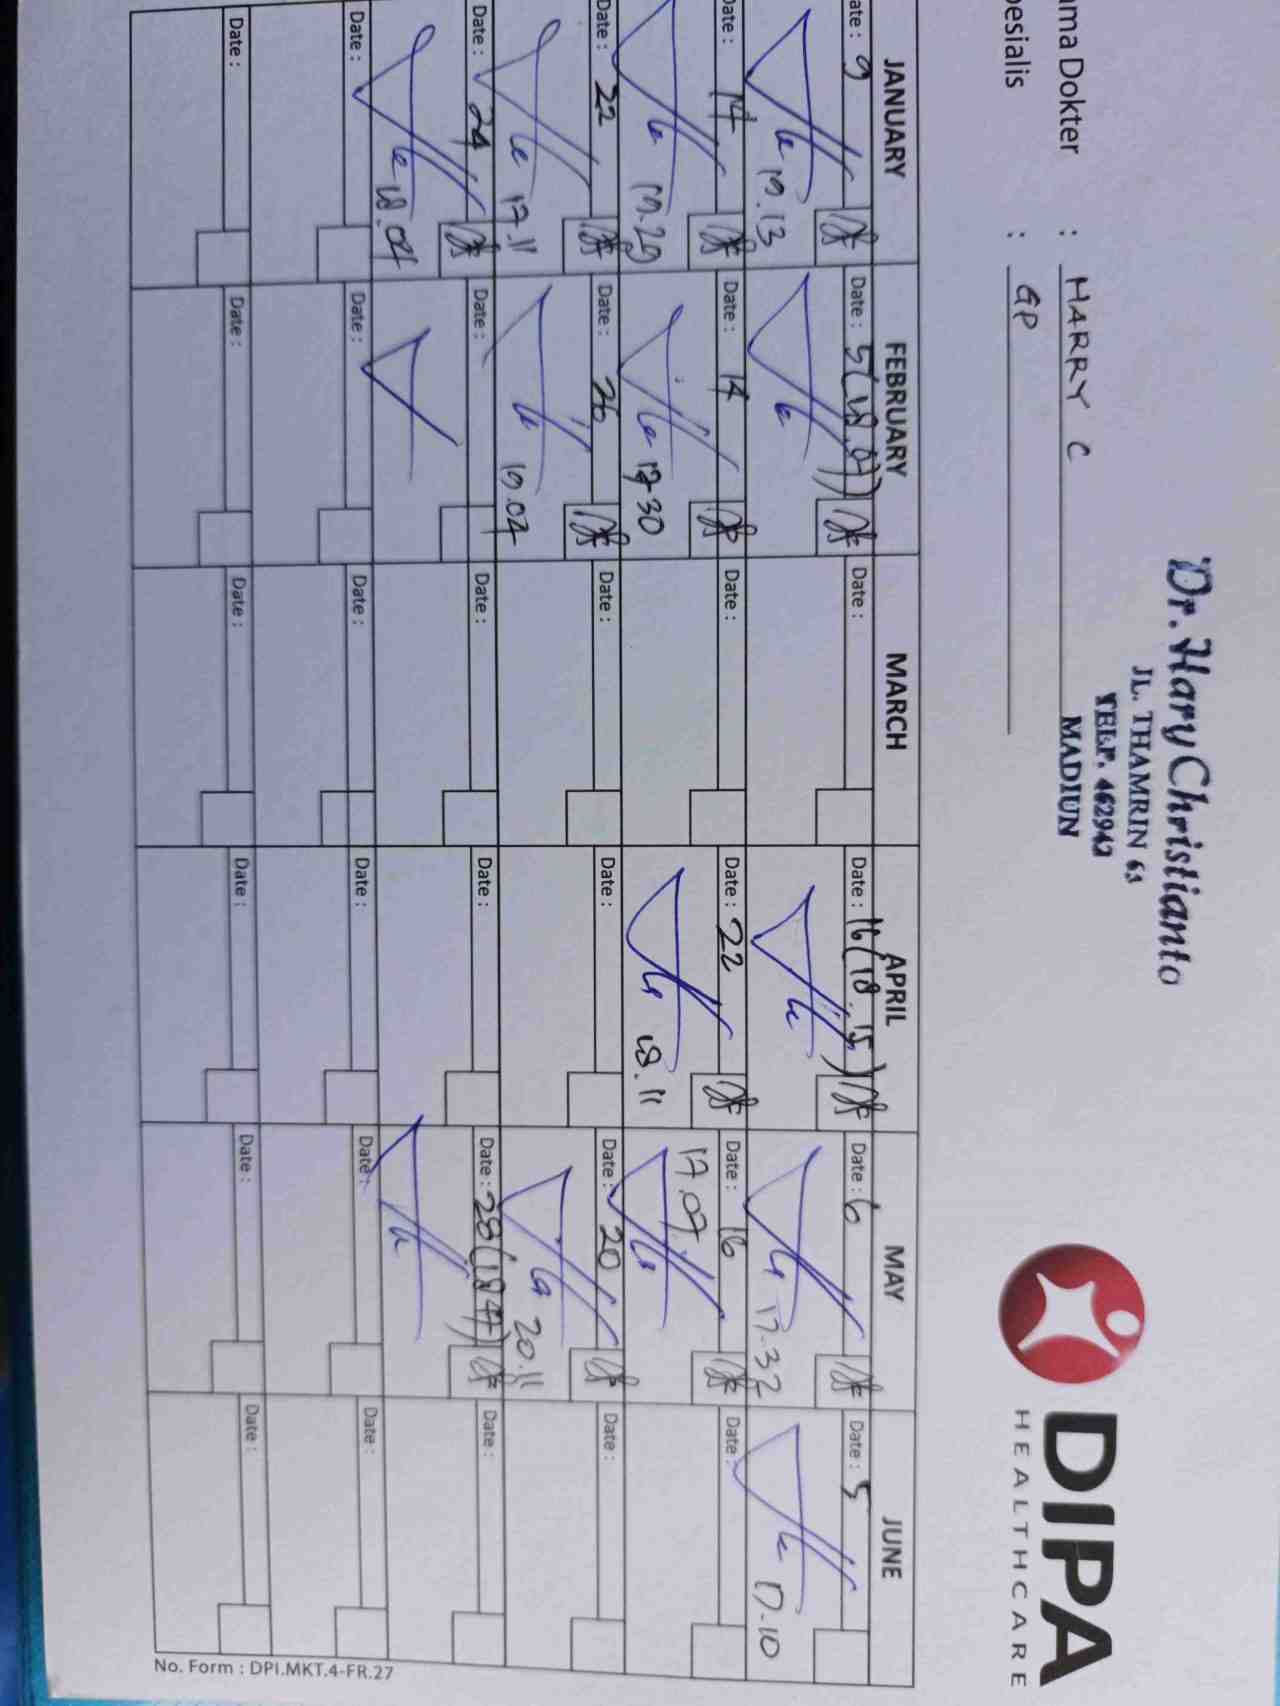 DIPA
HEALTHCARE
Dr. Hary Christianto
JL. THAMRIN 63
TELP. 462942
MADIUN
ama Dokter : HARRY C
pesialis : GP
JANUARY FEBRUARY MARCH APRIL MAY JUNE
ate : 9 Date : 5 (18.07) Date : Date : 16 (18.15) Date : 6 Date : 5
19.13 17.32 17.10
Date : 14 Date : 14 Date : Date : 22 Date : 16 Date :
19.29 17.30 18.11 17.07
Date : 22 Date : 26 Date : Date : Date : 20 Date :
17.11 19.04 20.11
Date : 24 Date : Date : Date : Date : 28 (18.47) Date :
18.04
Date : Date : Date : Date : Date : Date :
Date : Date : Date : Date : Date : Date :
No. Form : DPI.MKT.4-FR.27